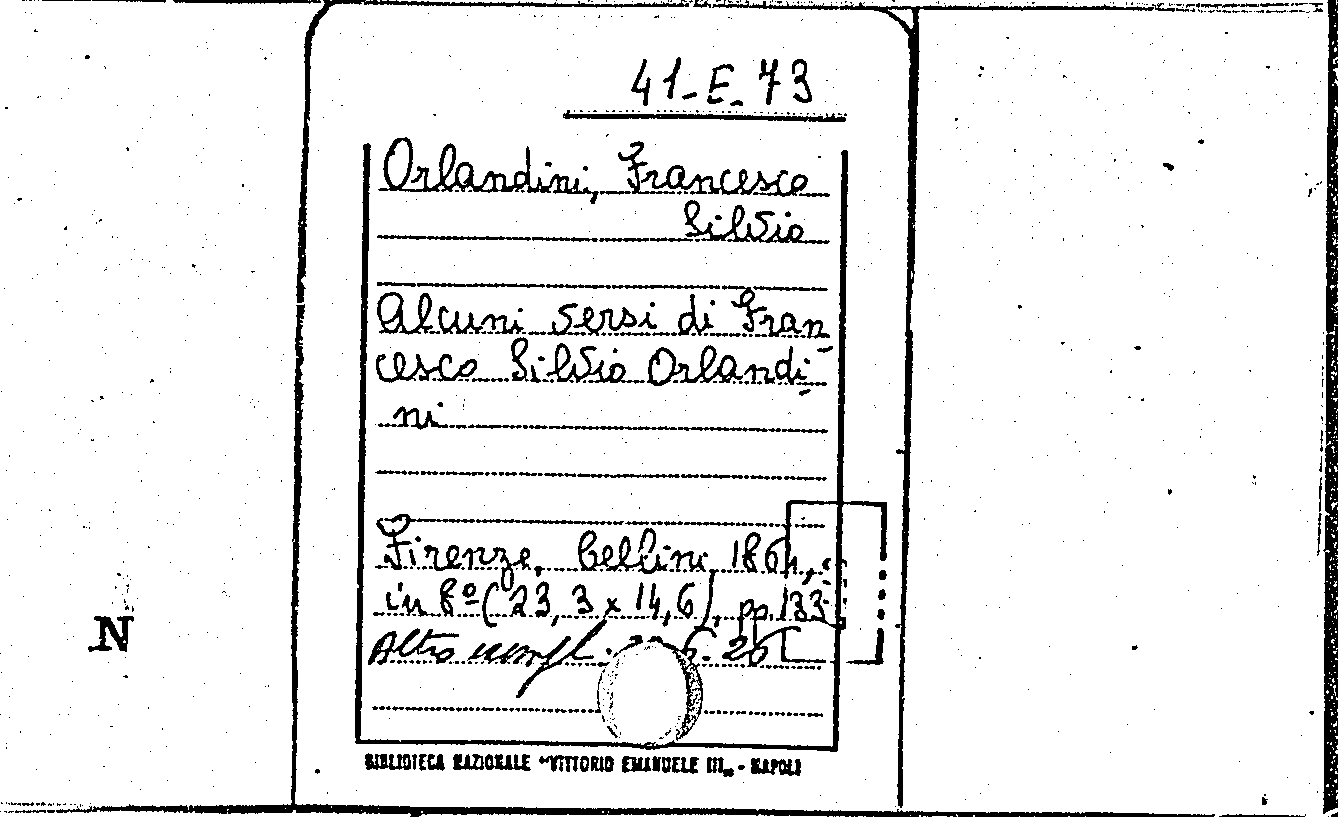 41-E-73
Orlandini, Francesco
Silvio
Alcuni versi di Fran
cesco Silvio Orlandi
ni
Firenze, Cellini, 1864,
in 8º (23,3 x 14,6), pp. 133
Altro
N
BIBLIOTECA NAZIONALE "VITTORIO EMANUELE III" - NAPOLI